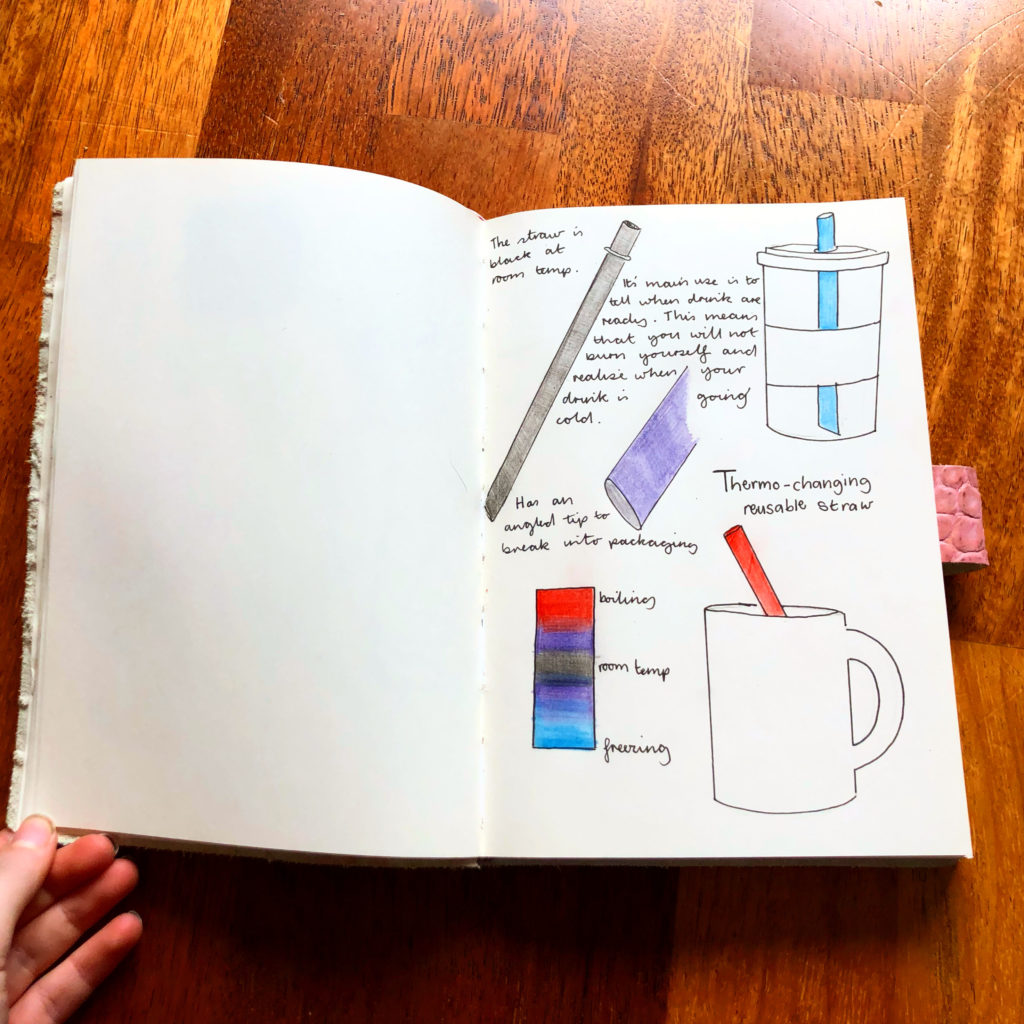 The straw is
black at
room temp.
It's main use is to
tell when drink are
ready. This means
that you will not
burn yourself and
realise when your
drink is going
cold.
Has an
angled tip to
break into packaging
Thermo-changing
reusable straw
boiling
room temp
freezing